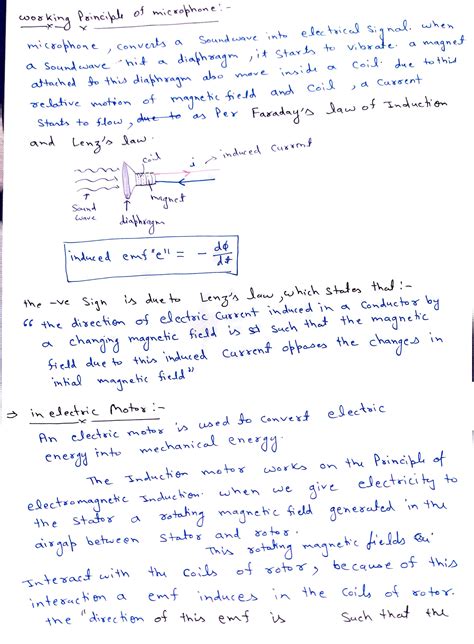 working Principle of microphone:-
microphone, converts a Soundwave into electrical signal. when
a Soundwave hit a diaphragm, it starts to vibrate. a magnet
attached to this diaphragm also move inside a coil. due to this
relative motion of magnetic field and coil, a current
starts to flow, due to as Per Faraday's law of Induction
and Lenz's law.
coil
i → induced current
Sound wave
magnet
diaphragm
induced emf "e" = - dφ/dt
the -ve Sign is due to Lenz's law, which states that :-
"the direction of electric current induced in a conductor by
a changing magnetic field is such that the magnetic
field due to this induced current opposes the changes in
intial magnetic field"
⇒ in electric Motor:-
An electric motor is used to convert electric
energy into mechanical energy.
The Induction motor works on the Principle of
electromagnetic Induction. when we give electricity to
the stator a rotating magnetic field generated in the
airgap between stator and rotor.
This rotating magnetic fields
Interact with the coils of rotor, because of this
interaction a emf induces in the coils of rotor.
the "direction of this emf is such that the